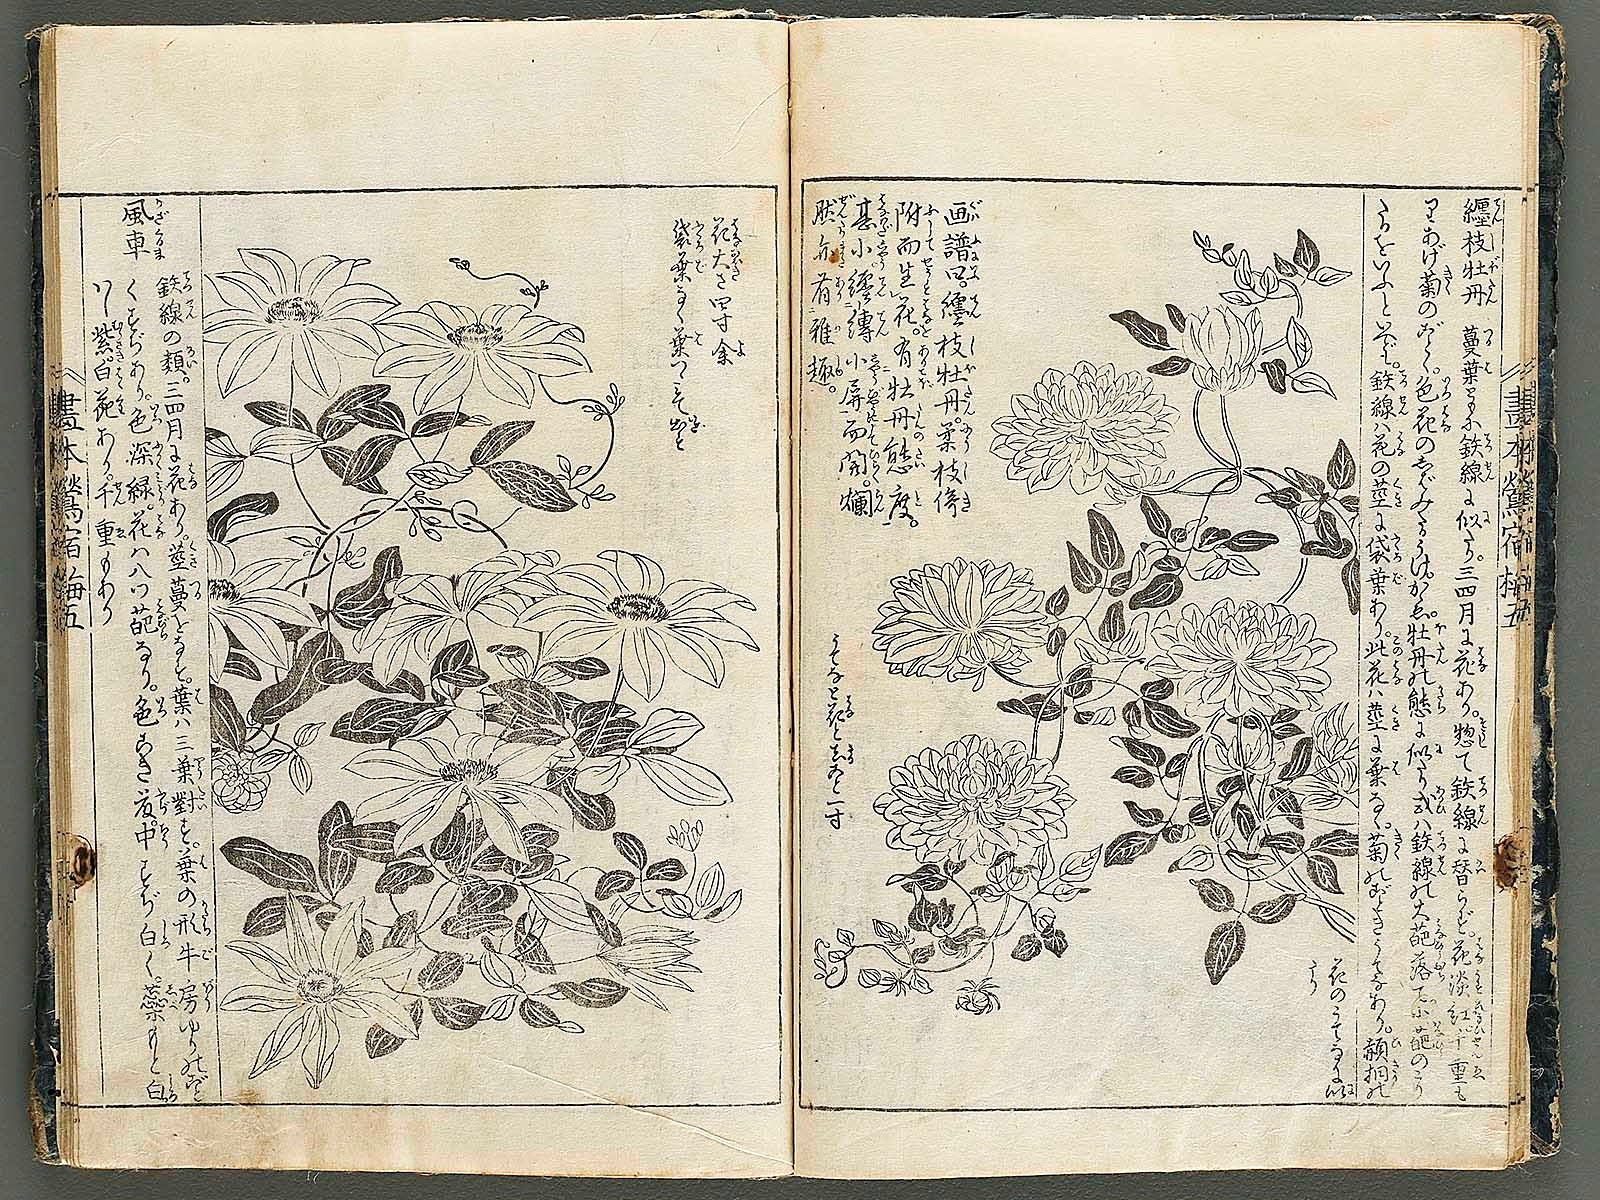 纏枝牡丹 蔓葉ともに鉄線に似たり。三四月に花あり。惣て鉄線に替らず。花淡紅千重も
りあげ菊のごとく。色花のしぼみたるけしき。牡丹の態に似たり或ハ鉄線の大葩落て小葩のこり
たるをいふといへども。鉄線ハ花の茎に袋葉あり。此花ハ茎に葉なし。菊のごときうてなあり。
花のうてなに似
たり
画譜曰。纏枝牡丹。柔枝倚
附而生。花。有牡丹態度。
甚小纏縛小屏而開。爛
然亦有雅趣。
うてなと花と長さ一寸
畫本鶯宿梅五
花大さ四寸余
袋葉なく
風車
鉄線の類。三四月に花あり。茎蔓をなす。葉ハ三葉對す。葉の形牛房
くすぢあり。色深緑。花ハ八ツ葩なり。色うすき 中すぢ白く。蕊もと白
紫白花あり。千重もあり
畫本鶯宿梅五